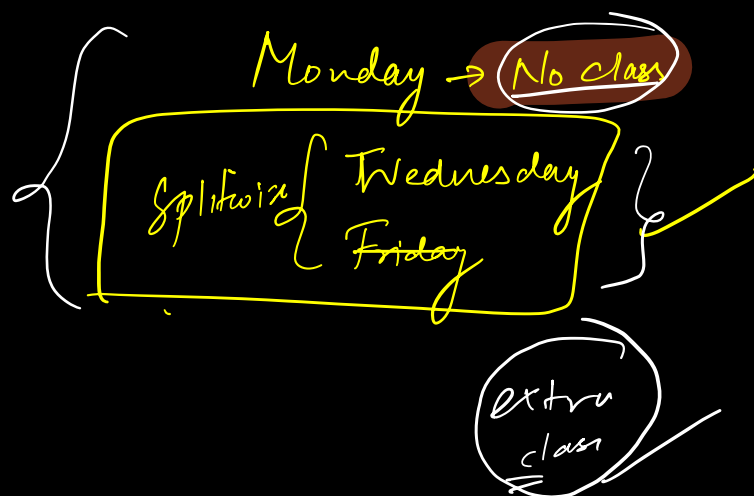 Monday → No class
Splitwix { Wednesday
Friday
extra
class